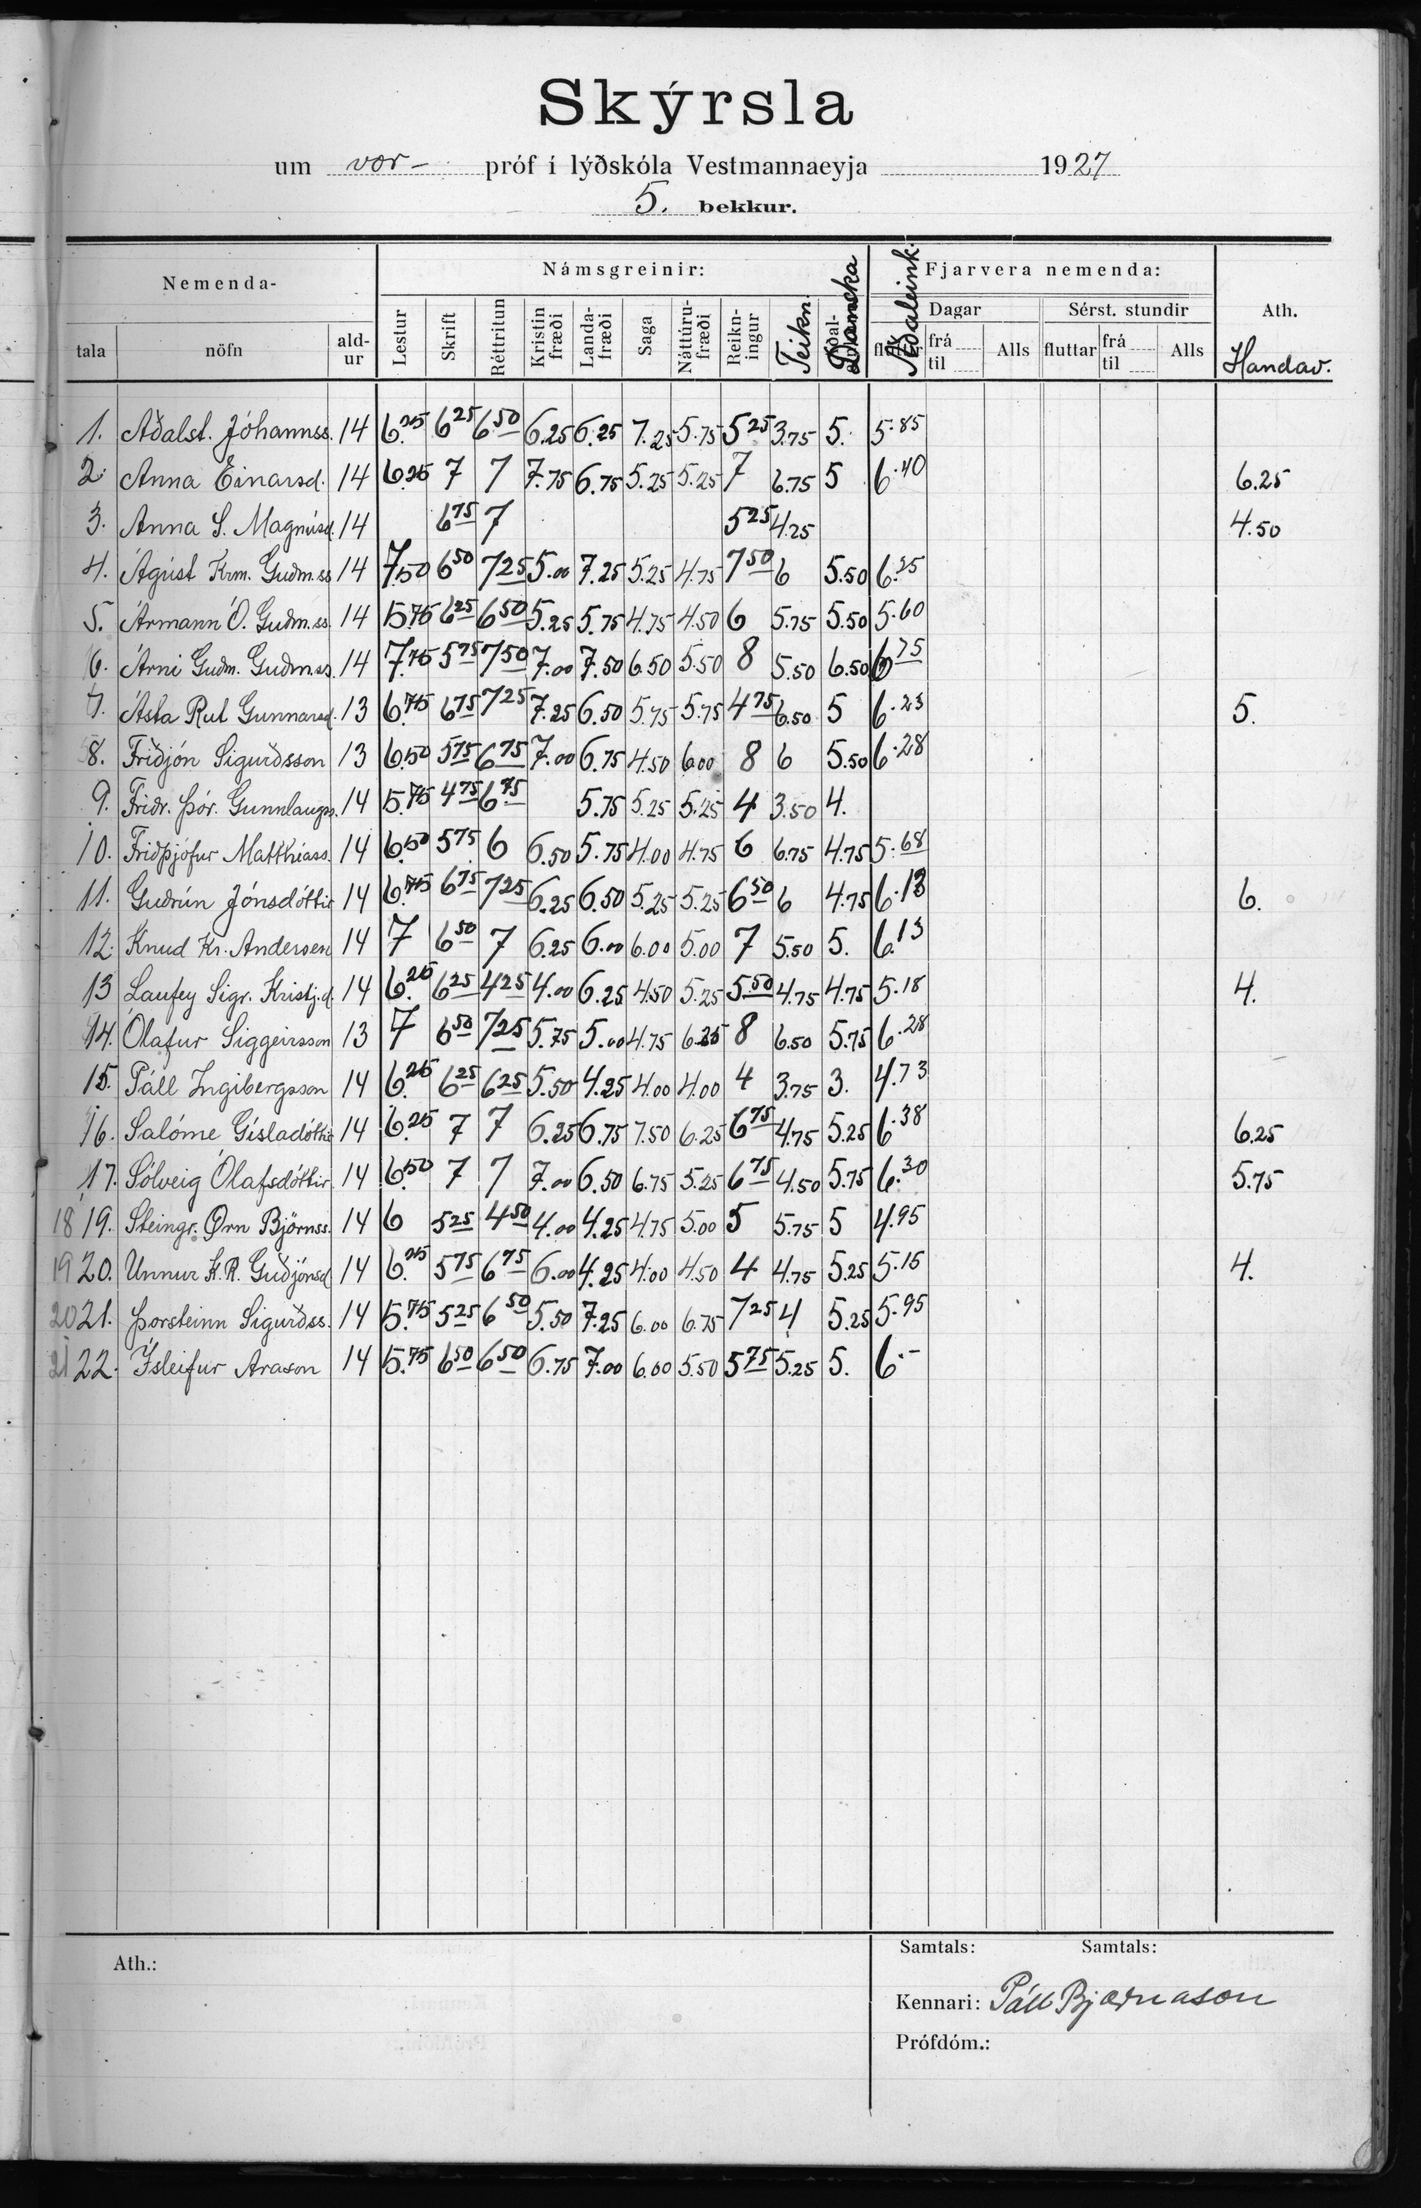 Skýrsla
um vor- próf í lýðskóla Vestmannaeyja 1927
5. bekkur.
Nemenda- Námsgreinir: Fjarvera nemenda: Ath.
tala nöfn ald-ur Lestur Skrift Réttritun Kristin fræði Landa-fræði Saga Náttúru-fræði Reikn-ingur Teikn. Danska Aðaleink. Dagar fluttar frá til Alls Sérst. stundir fluttar frá til Alls Handav.
1. Aðalst. Jóhannss. 14 6.25 6 25 6 50 6.25 6.25 7.25 5.75 5 25 3.75 5. 5.85
2. Anna Einarsd. 14 6.25 7 7 7.75 6.75 5.25 5.25 7 6.75 5 6.40 6.25
3. Anna S. Magnúsd. 14 6 75 7 5 25 4.25 4.50
4. Ágúst Krm. Guðm.ss 14 7.50 6 50 7 25 5.00 7.25 5.25 4.75 7 50 6 5.50 6.25
5. Ármann Ó. Guðm.ss. 14 5.75 6 25 6 50 5.25 5.75 4.75 4.50 6 5.75 5.50 5.60
6. Árni Guðm. Guðm.ss. 14 7.75 5 75 7 50 7.00 7.50 6.50 5.50 8 5.50 6.50 6 75
7. Ásta Rut Gunnarsd. 13 6.75 6 75 7 25 7.25 6.50 5.75 5.75 4 75 6.50 5 6.23 5.
8. Friðjón Sigurðsson 13 6.50 5 75 6 75 7.00 6.75 4.50 6.00 8 6 5.50 6.28
9. Friðr. Þór. Gunnlaugss. 14 5.75 4 75 6 75 5.75 5.25 5.25 4 3.50 4.
10. Friðþjófur Matthíass. 14 6.50 5 75 6 6.50 5.75 4.00 4.75 6 6.75 4.75 5.68
11. Guðrún Jónsdóttir 14 6.75 6 75 7 25 6.25 6.50 5.25 5.25 6 50 6 4.75 6.13 6.
12. Knud Kr. Andersen 14 7 6 50 7 6.25 6.00 6.00 5.00 7 5.50 5. 6.13
13 Laufey Sigr. Kristj.d. 14 6.25 6 25 4 25 4.00 6.25 4.50 5.25 5.50 4.75 4.75 5.18 4.
14. Ólafur Siggeirsson 13 7 6 50 7 25 5.75 5.00 4.75 6.25 8 6.50 5.75 6.28
15. Páll Ingibergsson 14 6.25 6 25 6 25 5.50 4.25 4.00 4.00 4 3.75 3. 4.73
16. Salóme Gísladóttir 14 6.25 7 7 6.25 6.75 7.50 6.25 6 75 4.75 5.25 6.38 6.25
17. Sólveig Ólafsdóttir 14 6.50 7 7 7.00 6.50 6.75 5.25 6 75 4.50 5.75 6.30 5.75
18 19. Steingr. Örn Björnss. 14 6 5 25 4 50 4.00 4.25 4.75 5.00 5 5.75 5 4.95
19 20. Unnur K.R. Guðjónsd 14 6.25 5 75 6 75 6.00 4.25 4.00 4.50 4 4.75 5.25 5.15 4.
20 21. Þorsteinn Sigurðss. 14 5.75 5 25 6 50 5.50 7.25 6.00 6.75 7 25 4 5.25 5.95
21 22. Ísleifur Arason 14 5.75 6 50 6 50 6.75 7.00 6.00 5.50 5 75 5.25 5. 6.-
Ath.: Samtals: Samtals:
Kennari: Páll Bjarnason
Prófdóm.: